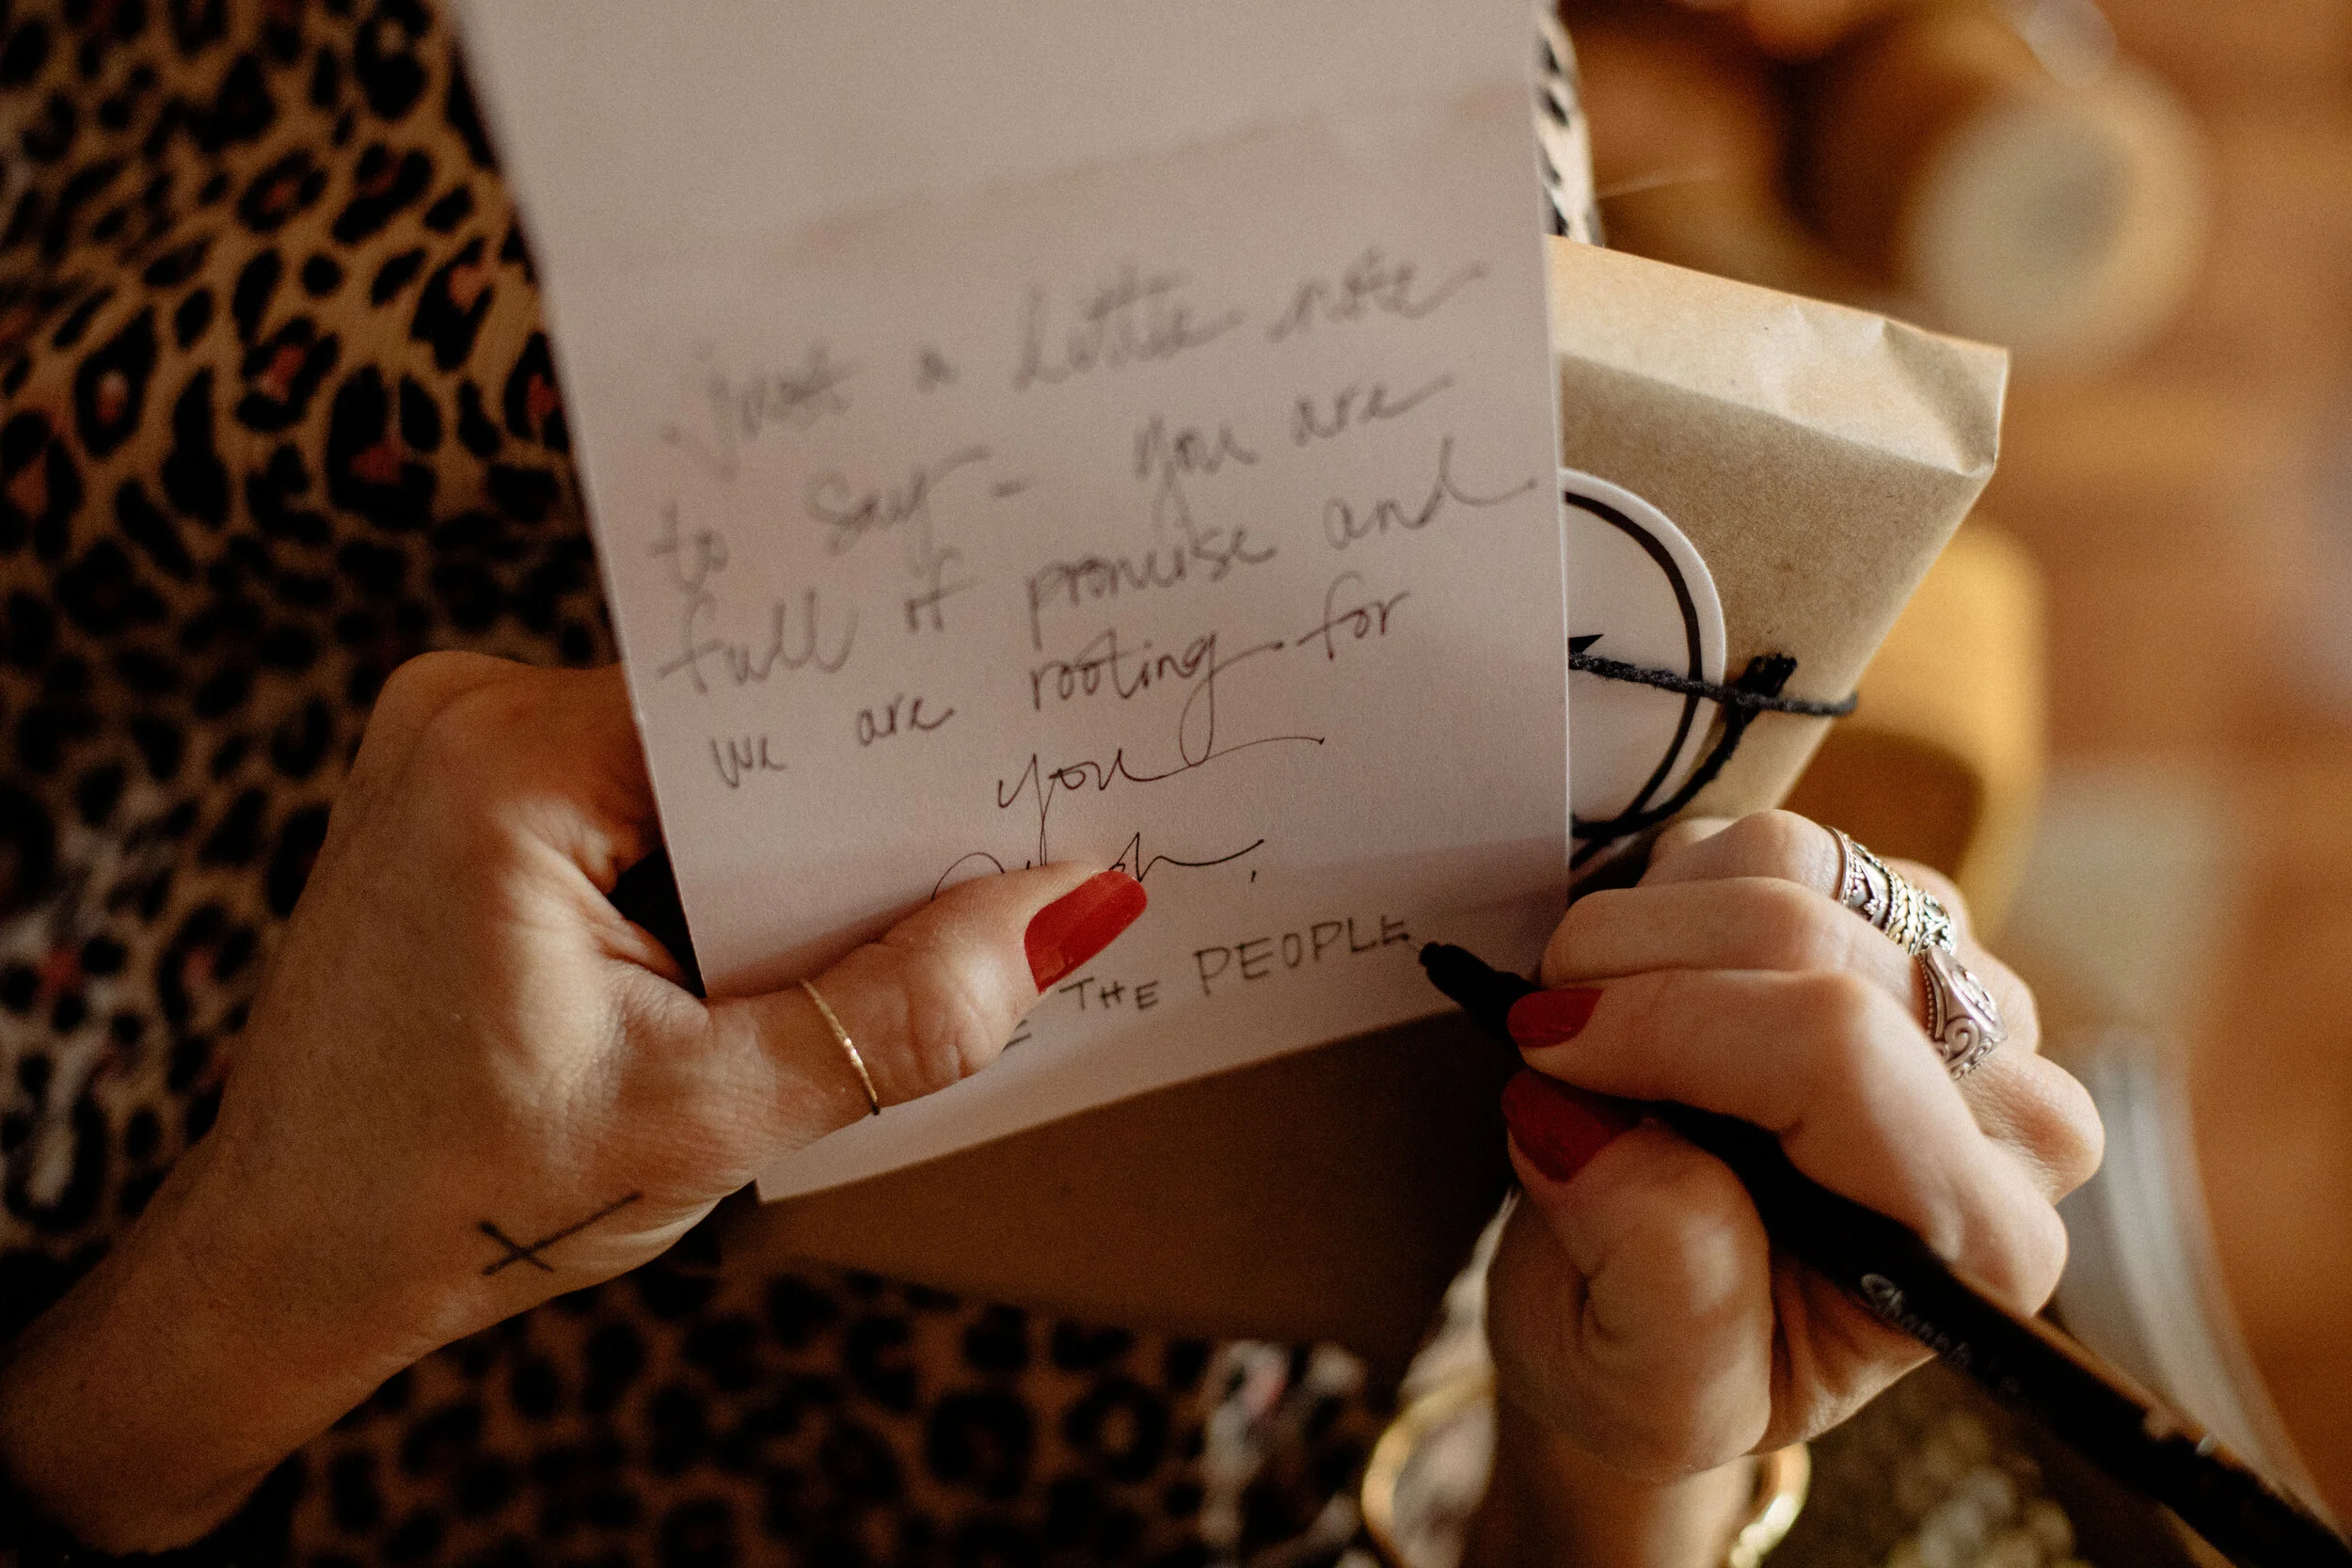 just a little note
to say - you are
full of promise and
we are rooting for
you
THE PEOPLE